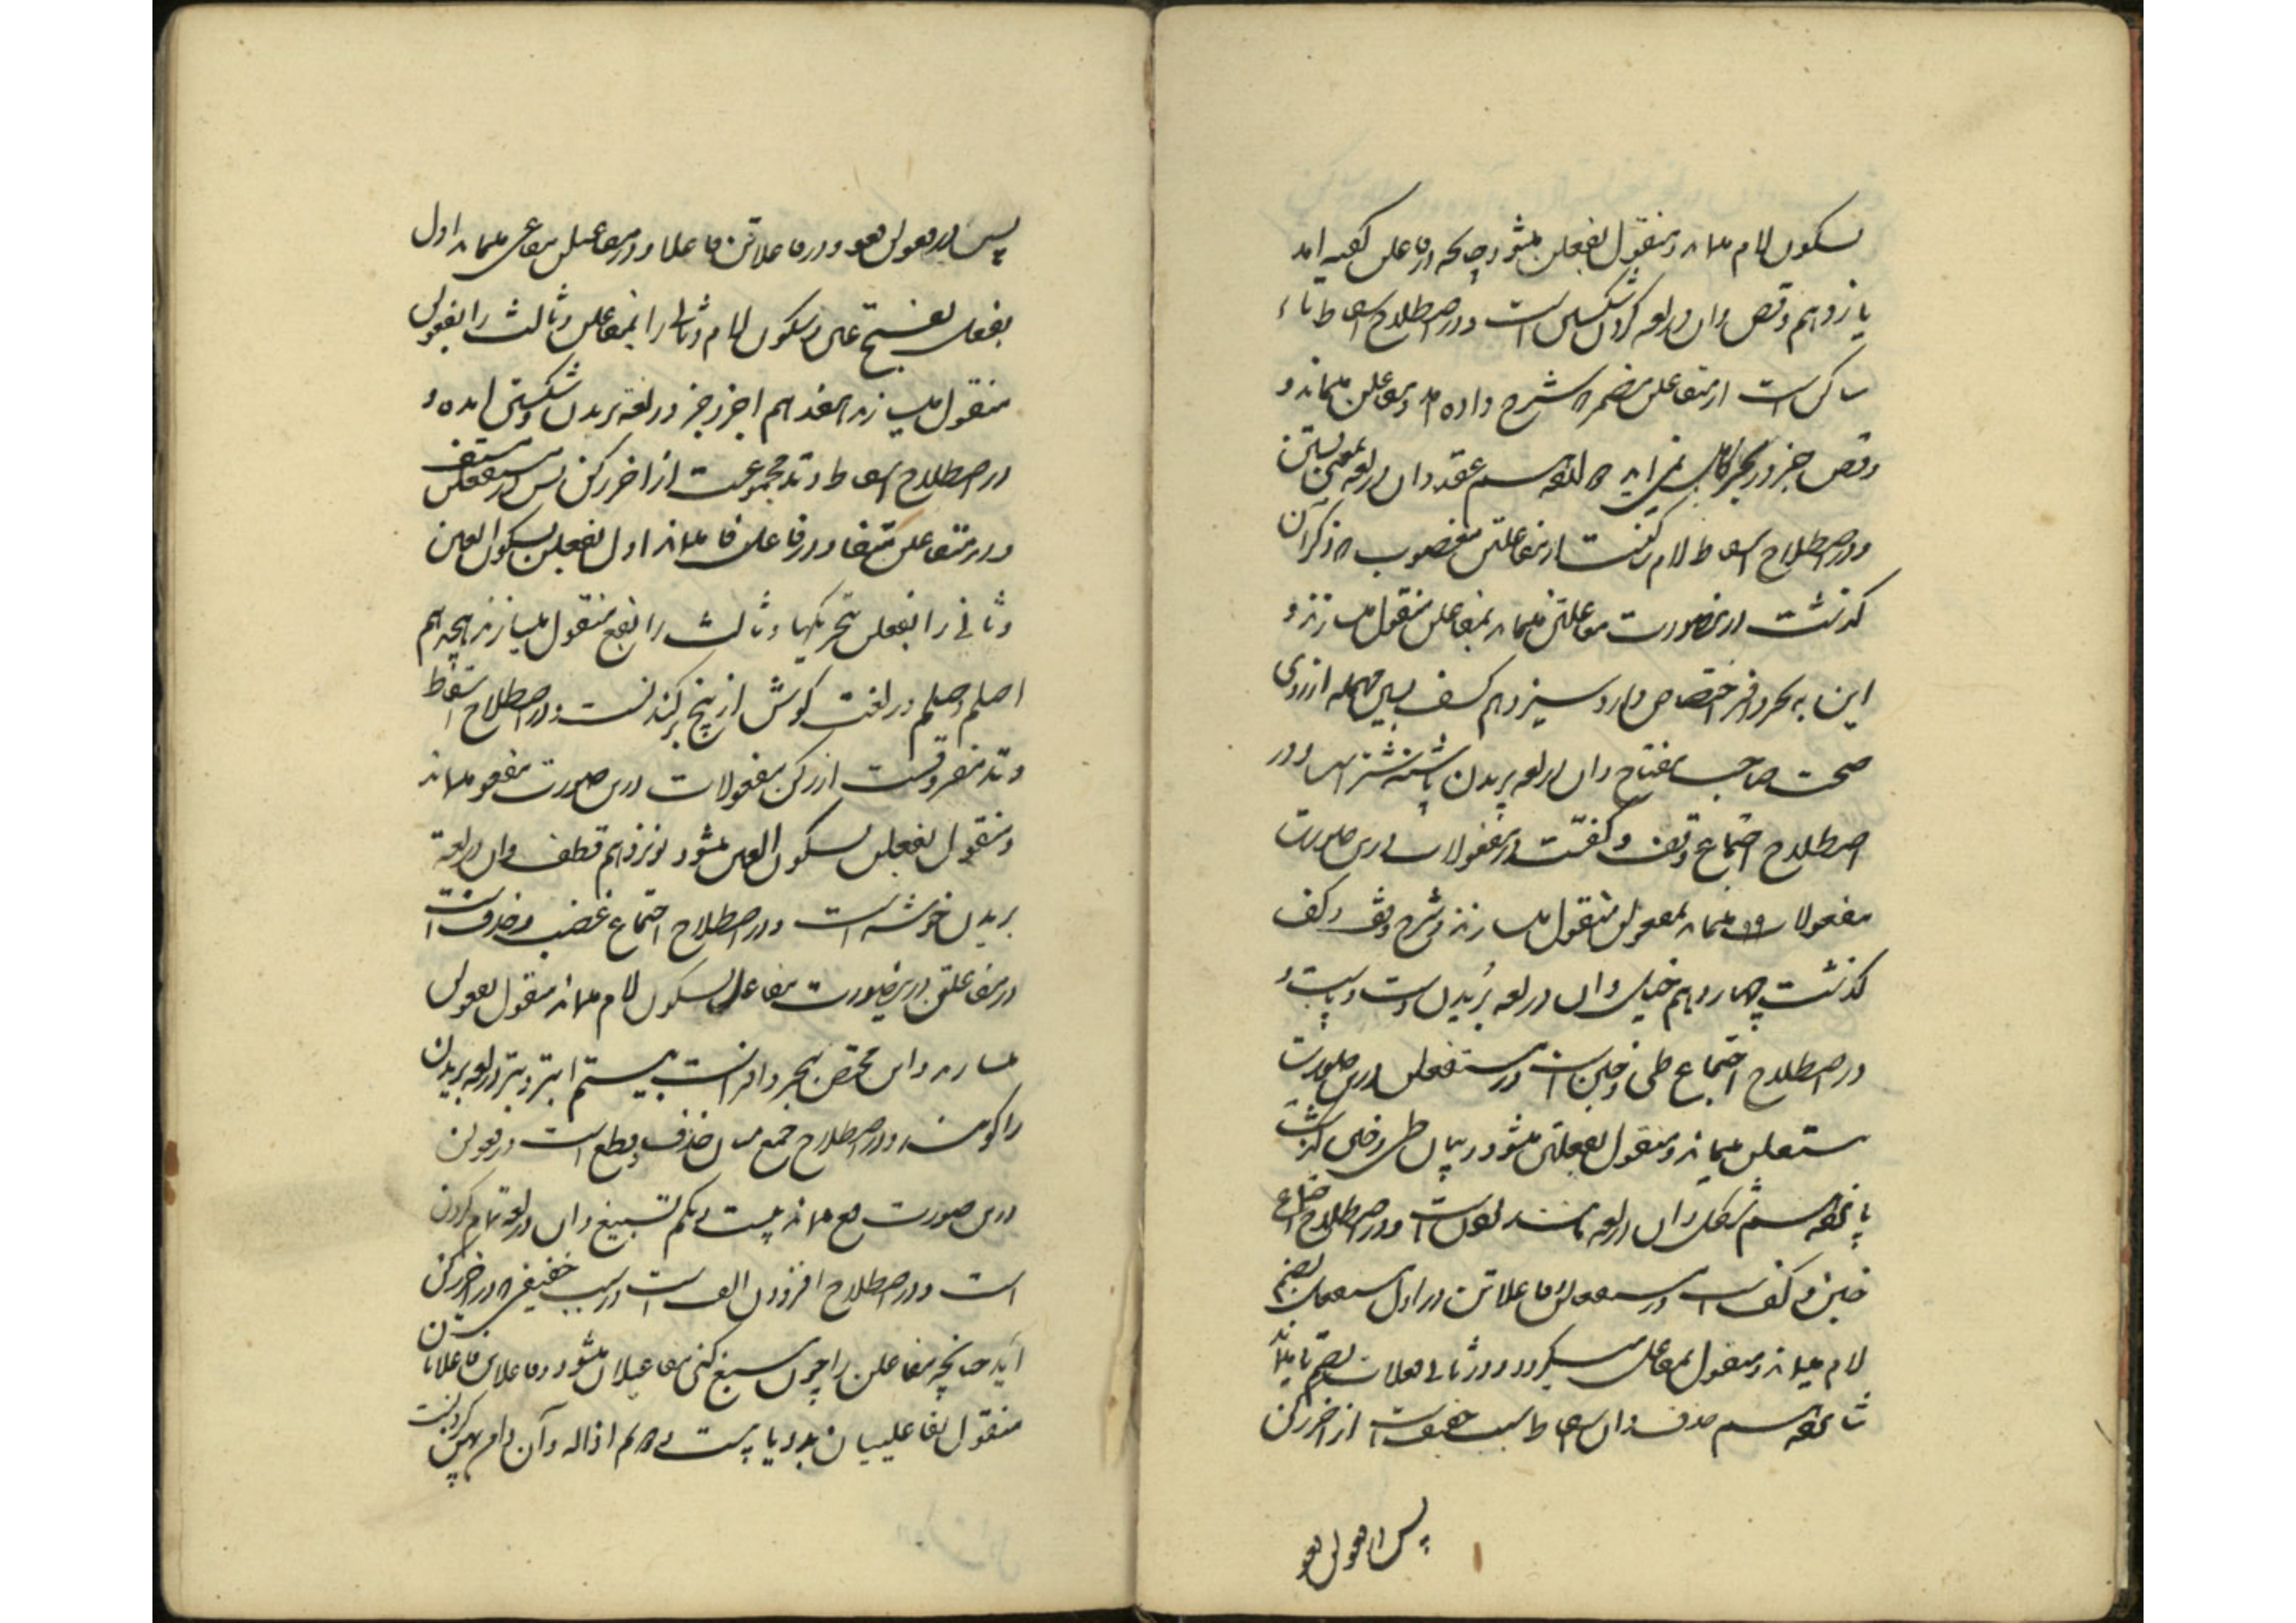 بسکون لام میماند و منقول بفعلن میشود چنانچه در فاعلن گفته آمد
یازدهم وقص و آن در لغه گردن شکستن است و در اصطلاح اسقاط تاء
ساکن است از متفاعلن مضمر که شرح داده آمد و مفاعلن میماند و
وقص جز در بحر کامل نمی‌آید دوازدهم عقد و آن در لغه بمعنی بستن
و در اصطلاح اسقاط لام رکنست از مفاعلتن معصوب که ذکر آن
گذشت درینصورت مفاعتن میماند بمفاعلن منقول میسازند و
این به بحر وافر اختصاص دارد سیزدهم کسف بسین مهمله از روی
صحت صاحب مفتاح و آن در لغه بریدن پاشنه شتر است و در
اصطلاح اجتماع وقف و کفست در مفعولات درین صورت
مفعولا میماند بمفعولن منقول میسازند و شرح وقف و کف
گذشت چهاردهم خبل و آن در لغه بُریدن دست و پاست و
در اصطلاح اجتماع طی و خبن است در مستفعلن درین صورت
متعلن میماند و منقول بفعلتن میشود و بیان طی و خبن گذشت
پانزدهم شکل و آن در لغه مانند بودنست و در اصطلاح اجتماع
خبن و کف است در مستفعلن و فاعلاتن در اول متفعل بضم
لام میماند و منقول بمفاعل میگردد و در ثانی فعلات بضم تا میماند
شانزدهم حذف و آن اسقاط سبب خفیف است از آخر رکن
پس در فعولن فعو
پس در فعولن فعو و در فاعلاتن فاعلا و در مفاعیلن مفاعی میماند اول
بفعل بفتح عین و سکون لام و ثانی را بفاعلن و ثالث را بفعولن
منقول میسازند هفدهم احذ و حذ در لغه بریدن و شکستن آمده و
در اصطلاح اسقاط وتد مجموعست از آخر رکن پس در مستفعلن مستف
و در متفاعلن متفا و در فاعلن فا میماند اول بفعلن بسکون العین
و ثانی را بفعلن بتحریکها و ثالث را بفع منقول میسازند هجدهم
اصلم و صلم در لغت گوش از بیخ برکندنست و در اصطلاح اسقاط
وتد مفروقست از رکن مفعولات درین صورت مفعو میماند
و منقول بفعلن بسکون العین میشود نوزدهم قطف و آن در لغه
بریدن خوشه است و در اصطلاح اجتماع عصب و حذف است
در مفاعلتن درینصورت مفاعل بسکون لام میماند منقول بفعولن
میسازند و این مختص ببحر وافر است بیستم ابتر و بتر در لغه بریدن
را گویند و در اصطلاح جمع میان حذف و قطع است در فعولن
درین صورت فع میماند بیست و یکم تسبیغ و آن در لغه تمام کردن
است و در اصطلاح افزودن الف است در سبب خفیفی که در آخر رکن
آید چنانچه مفاعیلن را چون مسبغ کنی مفاعیلان میشود و فاعلاتن فاعلاتان
منقول بفاعلییان بدو یا بیست و دوم اذاله و آن دامن پهن کردنست